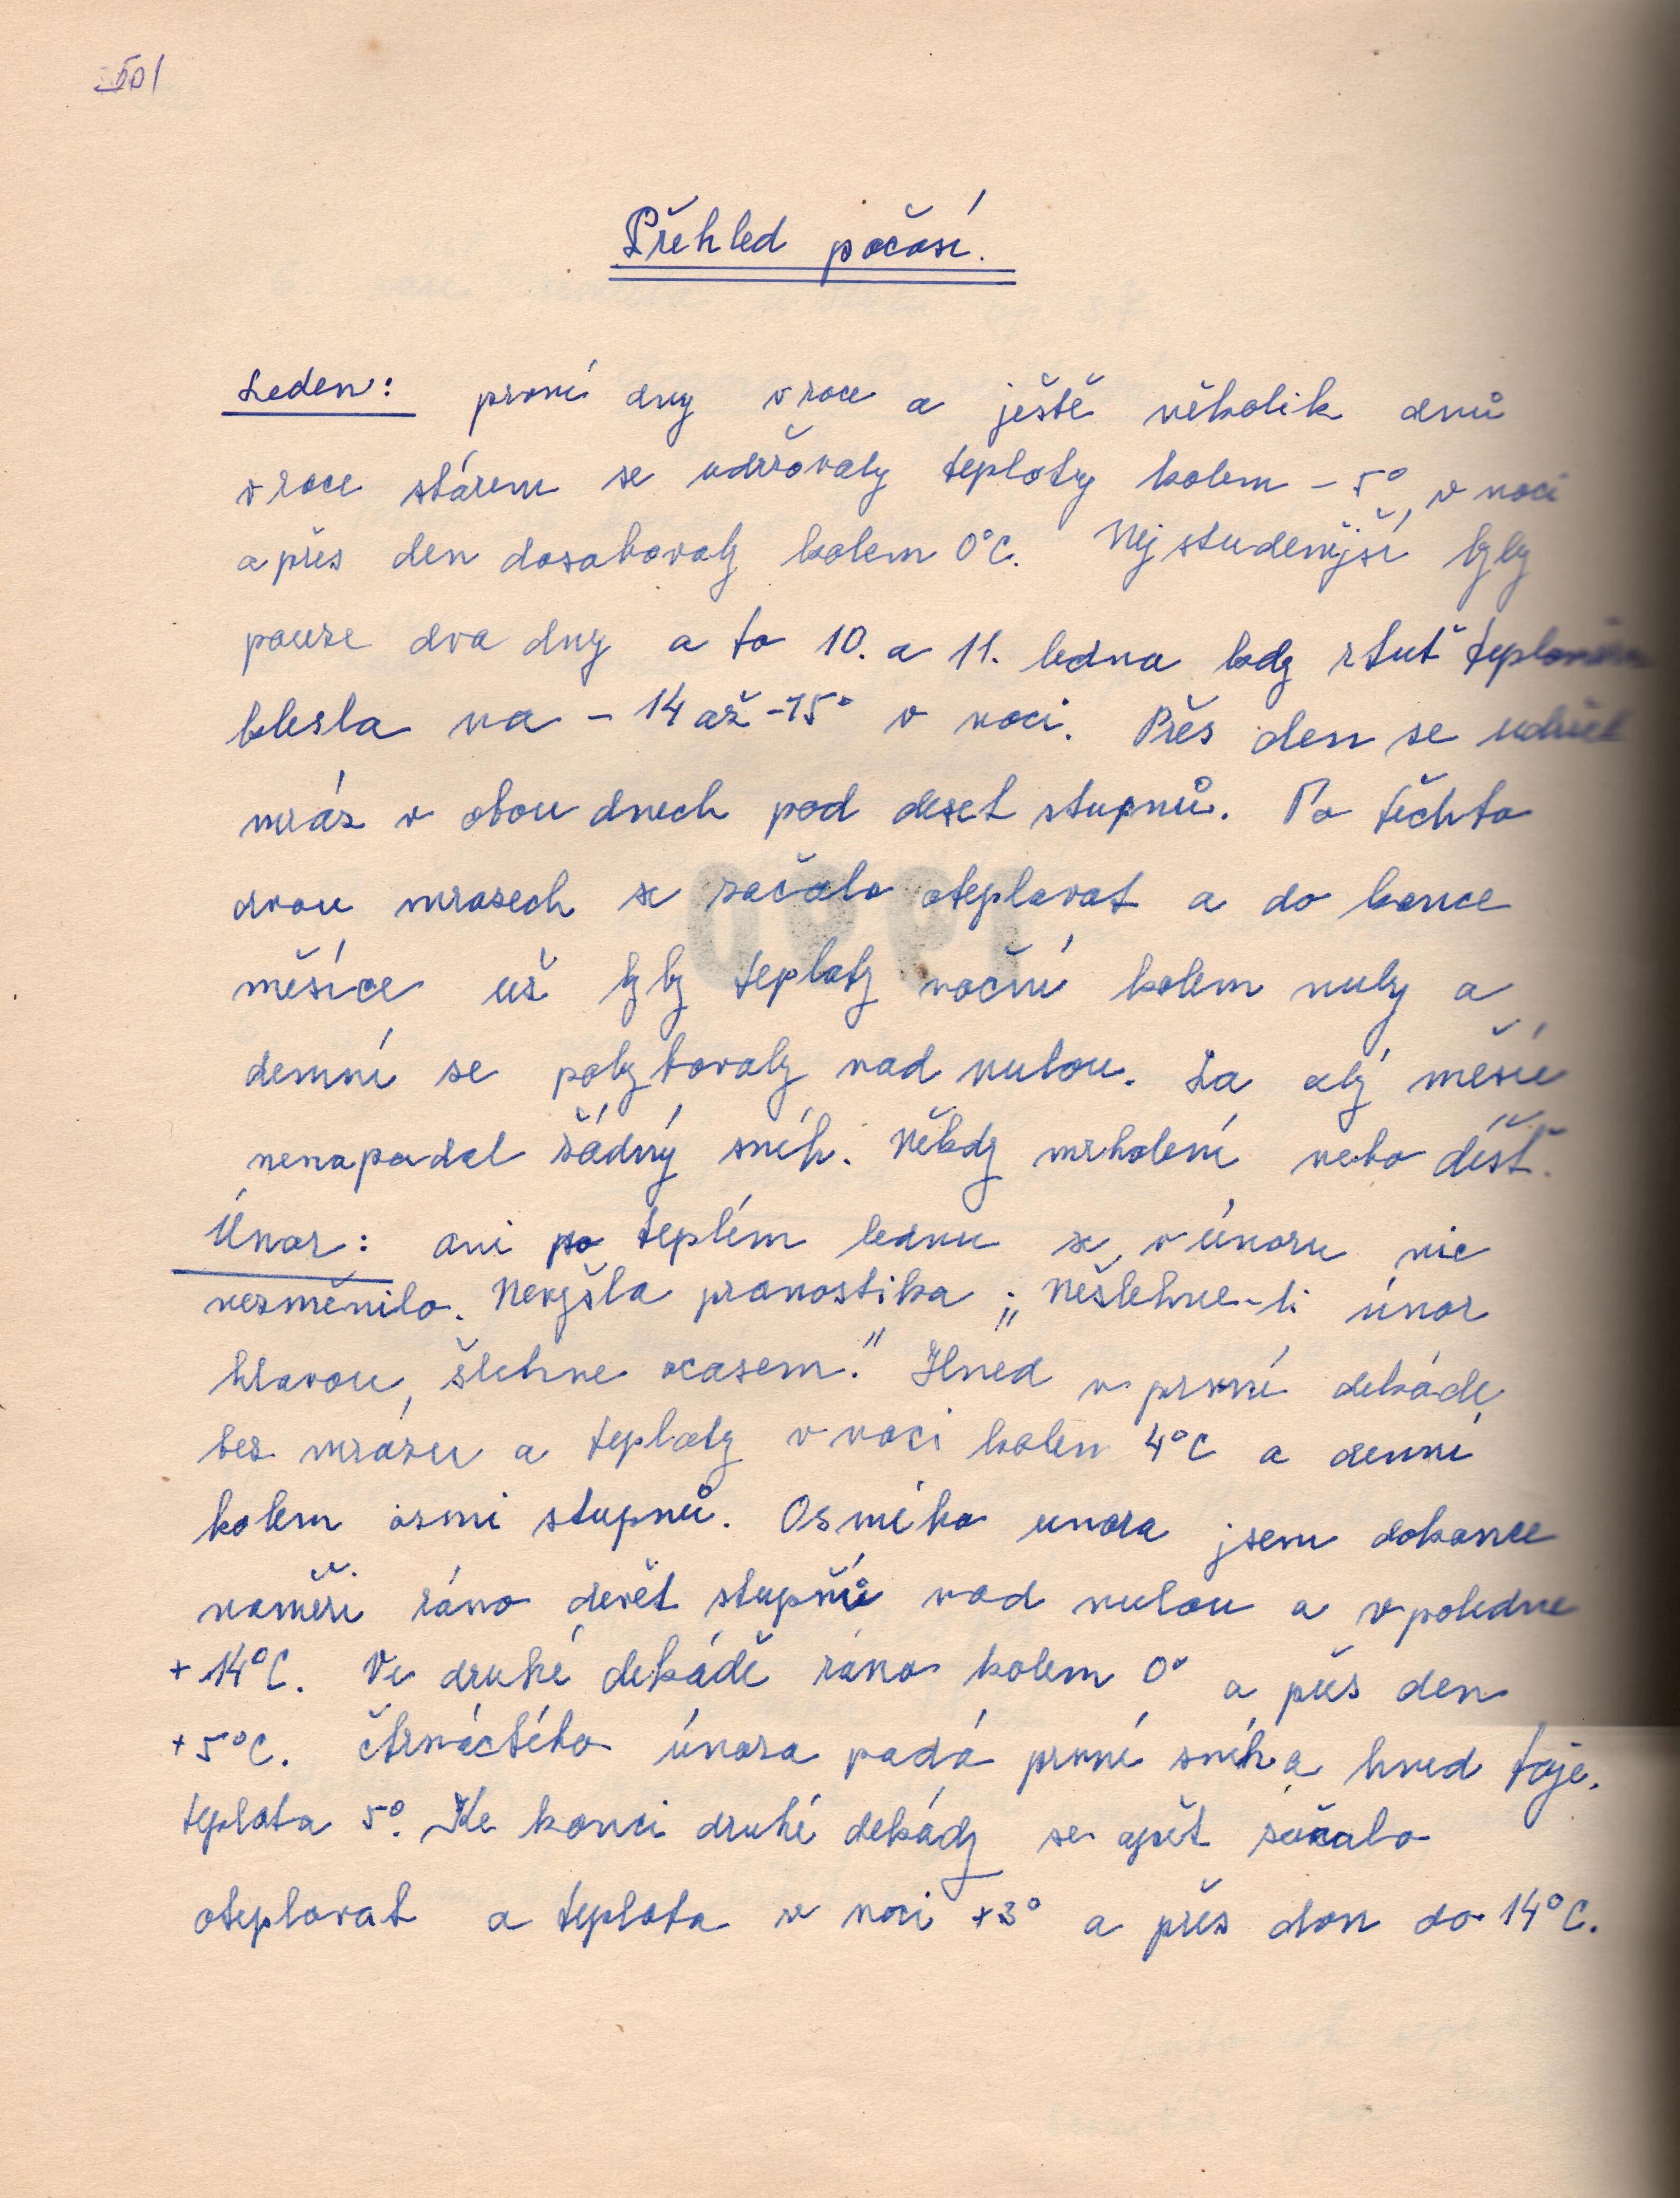 501
Přehled počasí.
Leden: první dny v roce a ještě několik dnů
v roce stárem se udržovaly teploty kolem -5°, v noci
a přes den dosahovaly kolem 0°C. Nejstudenější byly
pouze dva dny a to 10. a 11. ledna kdy rtuť
klesla na -14 až -15° v noci. Přes den se udržel
mráz v obou dnech pod deset stupňů. Po těchto
dvou mrazech se začalo oteplovat a do konce
měsíce už byly teploty noční kolem nuly a
denní se pohybovaly nad nulou. Za celý měsíc
nenapadal žádný sníh. Někdy mrholení nebo déšť.
Únor: ani po teplém lednu se v únoru nic
nezměnilo. Nevyšla pranostika ; „Nešlehne-li únor
hlavou, šlehne ocasem." Hned v první dekádě
bez mrázu a teploty v noci kolem 4°C a denní
kolem osmi stupňů. Osmého unora jsem dokonce
naměři ráno devět stupňů nad nulou a v poledne
+14°C. Ve druhé dekádě ráno kolem 0° a přes den
+5°C. Čtrnáctého února padá první sníh a hned taje.
teplota 5°. Ke konci druhé dekády se opět začalo
oteplovat a teplota v noci +3° a přes den do 14°C.